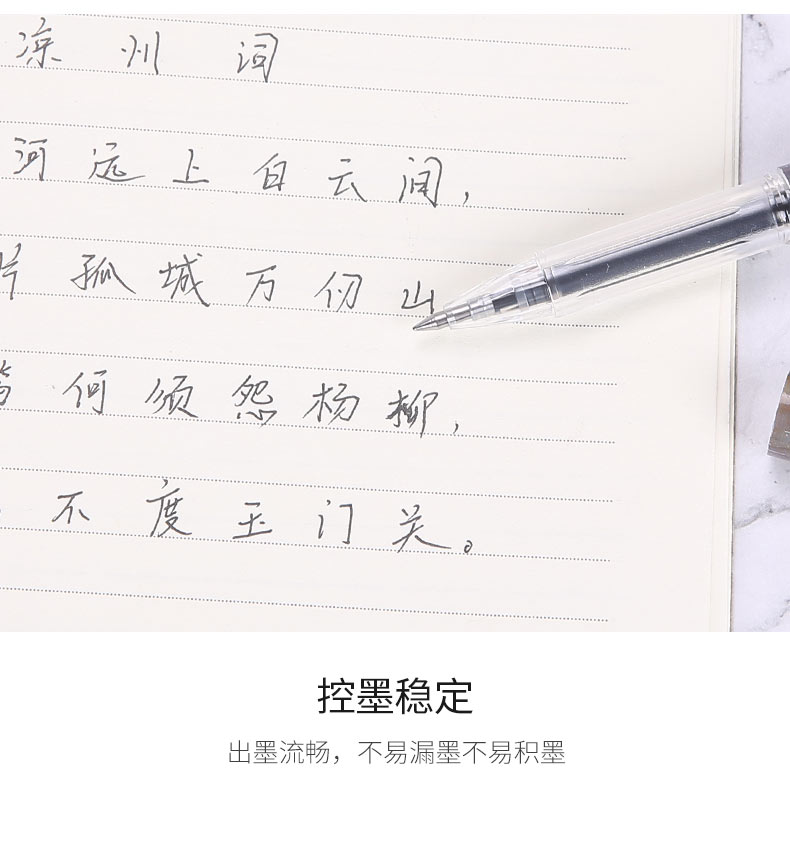 凉州词
河远上白云间，
片孤城万仞山
何须怨杨柳，
不度玉门关。
控墨稳定
出墨流畅，不易漏墨不易积墨